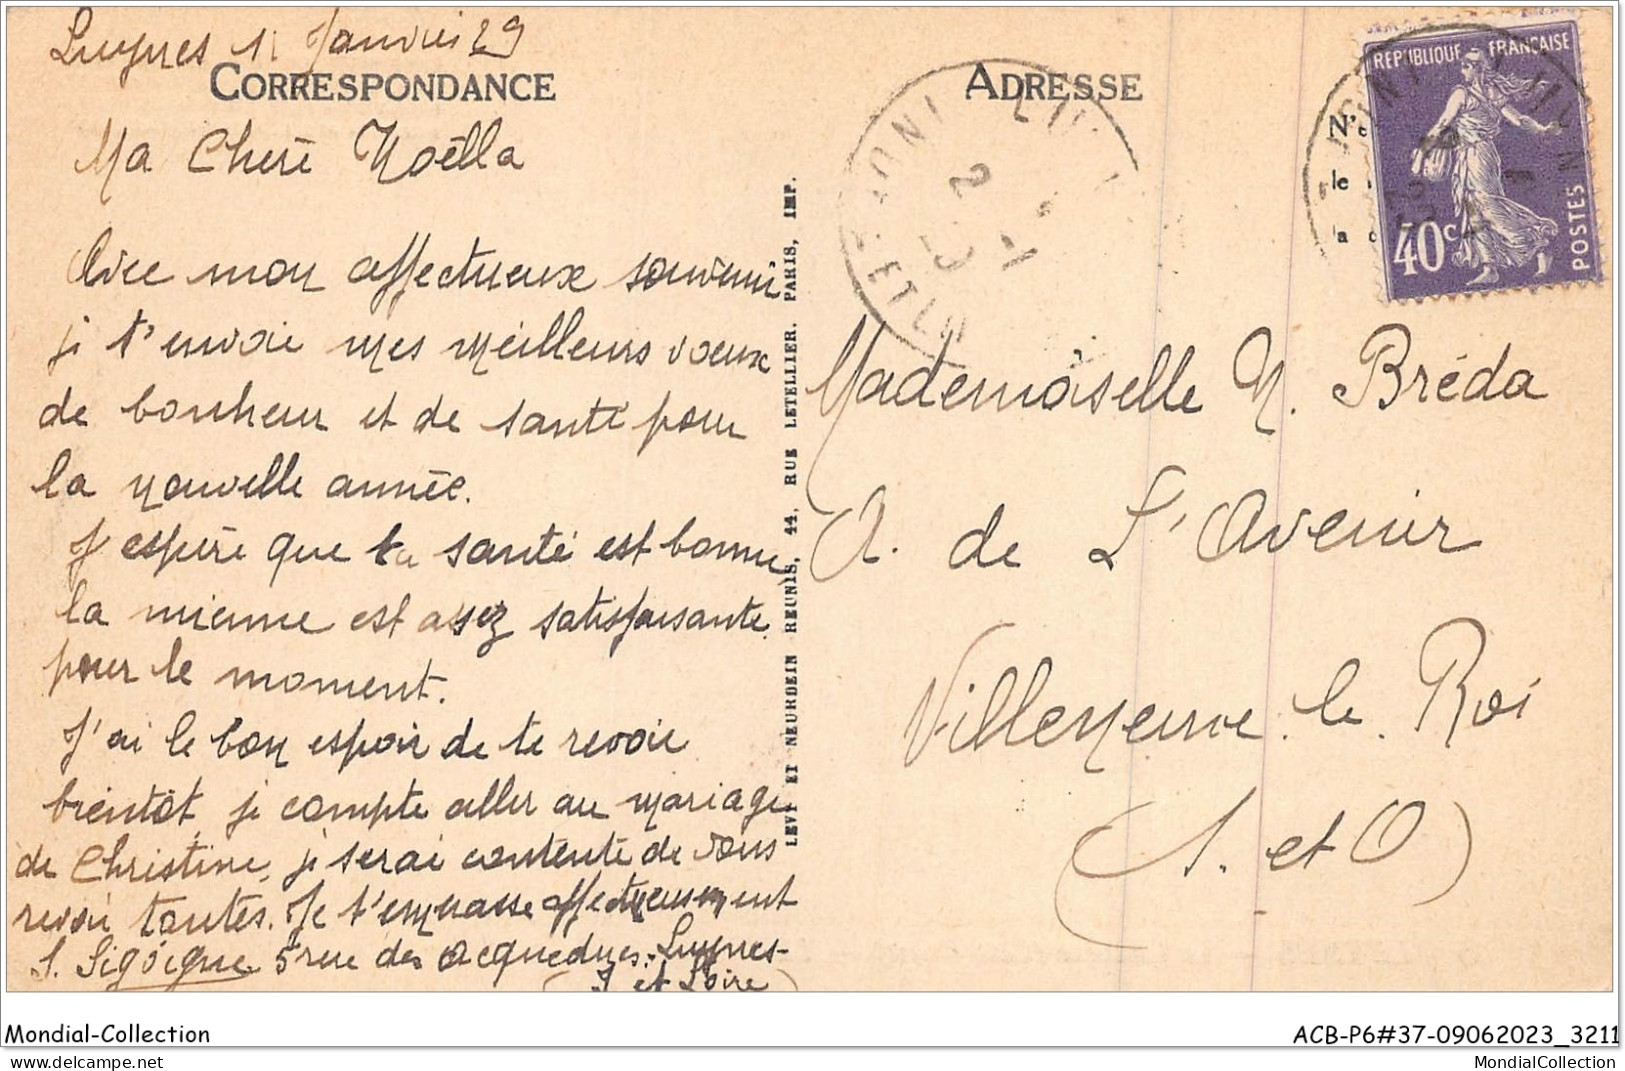 Luynes 1 Janvier 29
CORRESPONDANCE
Ma Chère Noëlla
Avec mon affectueux souvenir
je t'envoie mes meilleurs voeux
de bonheur et de santé pour
la nouvelle année.
J'espère que ta santé est bonne
la mienne est assez satisfaisante
pour le moment.
J'ai le bon espoir de te revoir
bientôt, je compte aller au mariage
de Christine, je serai contente de vous
revoir toutes. Je t'embrasse affectueusement
S. Sigoigne 5 rue des Acqueducs. Luynes-
(I et Loire)
LEVY ET NEURDEIN REUNIS, 44, RUE LETELLIER, PARIS, IMP.
ADRESSE
REPUBLIQUE FRANÇAISE
40c
POSTES
Mademoiselle N. Bréda
A. de L'Avenir
Villeneuve. le. Roi
(S. et O)
Mondial-Collection
ACB-P6#37-09062023_3211
www.mondial-collection.com
MondialCollection